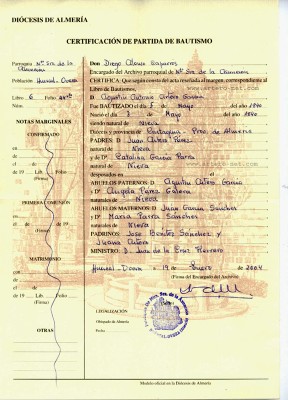 DIÓCESIS DE ALMERÍA
CERTIFICACIÓN DE PARTIDA DE BAUTISMO
Parroquia Nª Sra de la
Población Huércal-Overa
Libro 6 Folio
NOTAS MARGINALES
CONFIRMADO
en
de
de 19 Lib. Folio
(Firma)
PRIMERA COMUNIÓN
en
de
de 19 Lib. Folio
(Firma)
MATRIMONIO
en
de
de 19 Lib. Folio
(Firma)
OTRAS
Don Diego
Encargado del Archivo parroquial de Nª Sra de la
CERTIFICA: Que según consta del acta reseñada al margen, correspondiente al
Libro de Bautismos,
D. Agustín Antonio Artero García
Fue BAUTIZADO el de Mayo del 1840
Nació el de Mayo de 1840
siendo natural de Nieva
Diócesis y provincia de Cartagena - Prov. de Almería
PADRES: D. Juan Artero Pérez
natural de Nieva
y de Dª Catalina García Parra
natural de Nieva
desposados en
ABUELOS PATERNOS: D. Agustín Artero García
y Dª Angela Pérez
naturales de Nieva
ABUELOS MATERNOS: D. Juan García Sánchez
y Dª María Parra Sánchez
naturales de Nieva
PADRINOS: Jose Benítez Sánchez y
Juana Artero
MINISTRO: D. Juan de la Cruz
Huércal-Overa 19 de Enero de 2004
(Firma del Encargado del Archivo)
LEGALIZACIÓN
Obispado de Almería
Fecha
Modelo oficial en la Diócesis de Almería